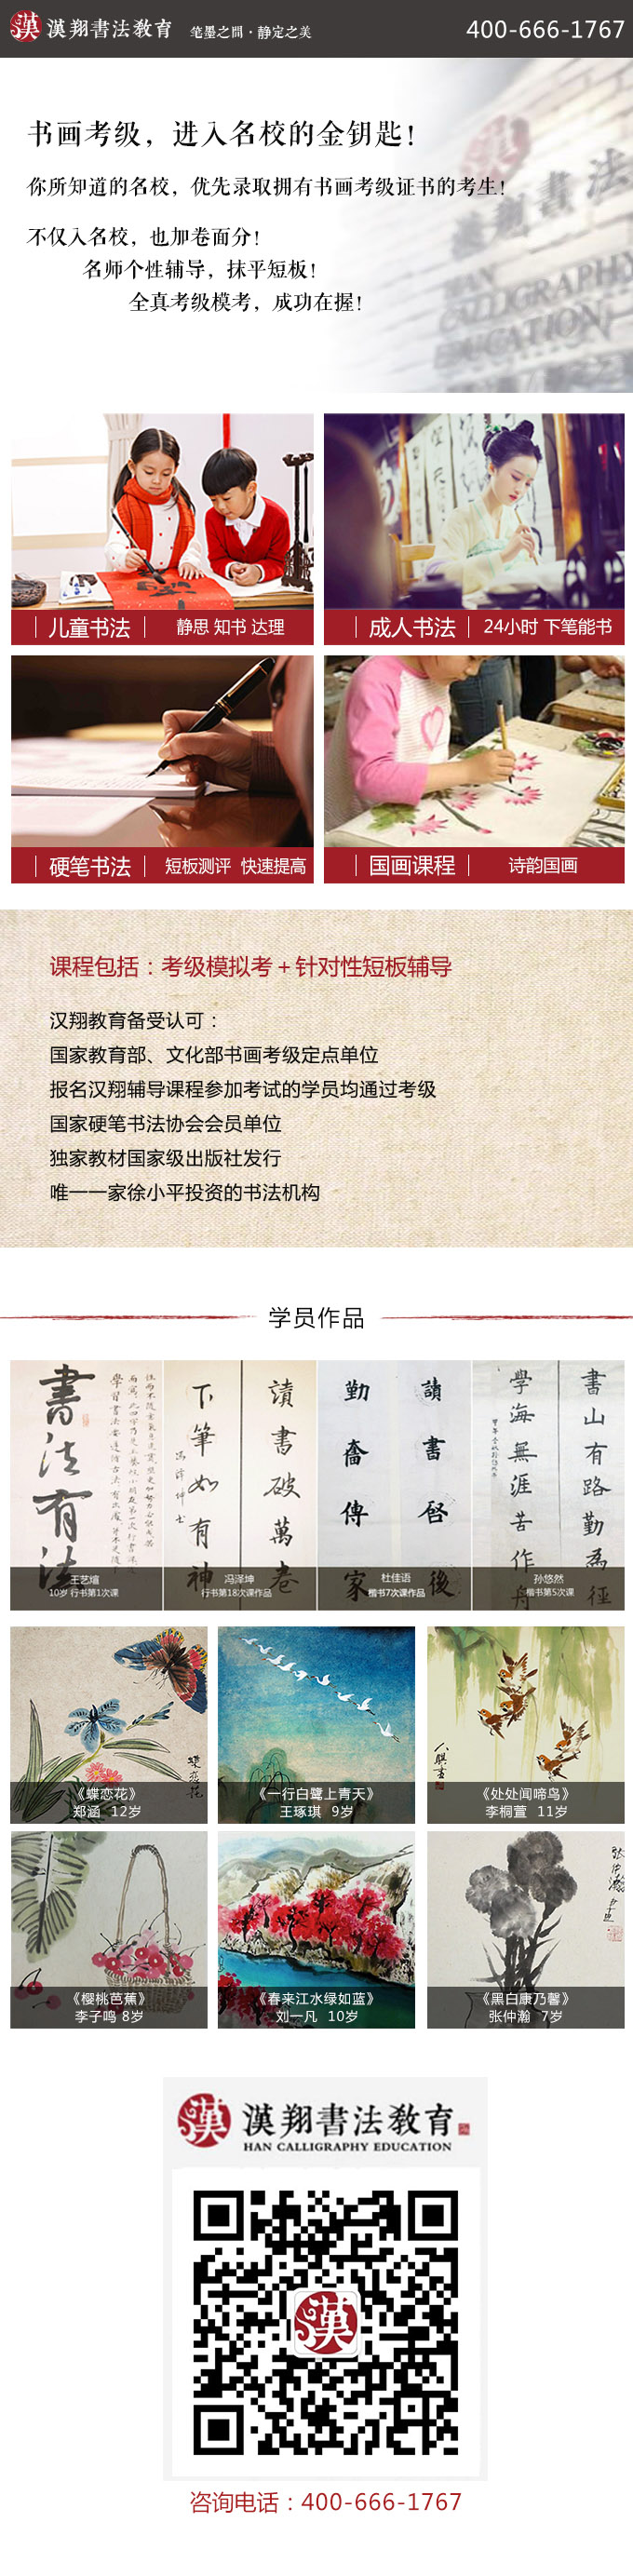 漢 漢翔書法教育 笔墨之间·静定之美 400-666-1767
书画考级，进入名校的金钥匙！
你所知道的名校，优先录取拥有书画考级证书的考生！
不仅入名校，也加卷面分！
名师个性辅导，抹平短板！
全真考级模考，成功在握！
儿童书法 静思 知书 达理
成人书法 24小时 下笔能书
硬笔书法 短板测评 快速提高
国画课程 诗韵国画
课程包括：考级模拟考＋针对性短板辅导
汉翔教育备受认可：
国家教育部、文化部书画考级定点单位
报名汉翔辅导课程参加考试的学员均通过考级
国家硬笔书法协会会员单位
独家教材国家级出版社发行
唯一一家徐小平投资的书法机构
学员作品
書法有法
王艺煊
10岁 行书第1次课
讀書破萬卷
下筆如有神
冯泽坤
行书第18次课作品
讀書啓後
勤奮傳家
杜佳语
楷书7次课作品
書山有路勤為徑
學海無涯苦作舟
孙悠然
楷书第5次课
蝶恋花
《蝶恋花》
郑涵 12岁
《一行白鹭上青天》
王琢琪 9岁
《处处闻啼鸟》
李桐萱 11岁
《樱桃芭蕉》
李子鸣 8岁
《春来江水绿如蓝》
刘一凡 10岁
《黑白康乃馨》
张仲瀚 7岁
漢 漢翔書法教育
HAN CALLIGRAPHY EDUCATION
漢
咨询电话：400-666-1767